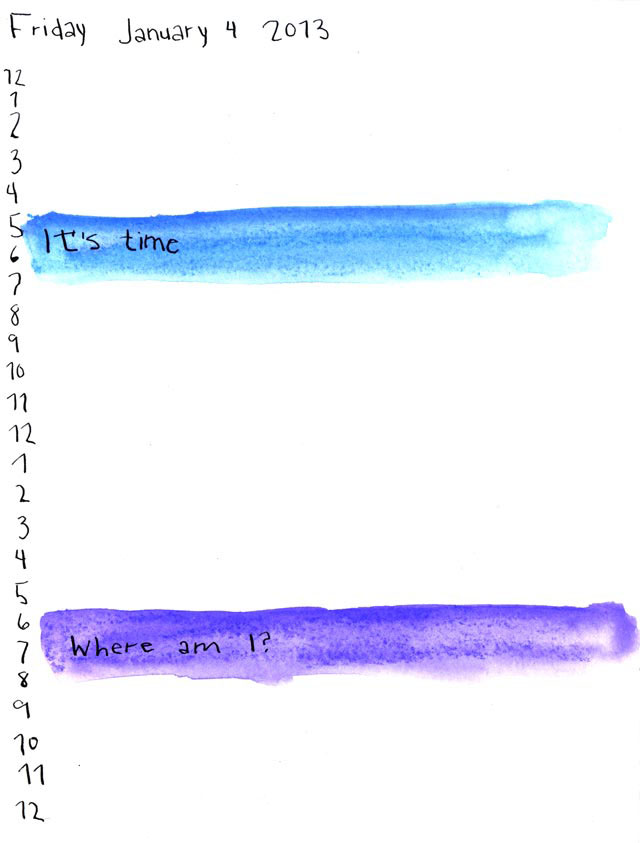 Friday January 4 2013
12
1
2
3
4
5
It's time
6
7
8
9
10
11
12
1
2
3
4
5
6
Where am I?
7
8
9
10
11
12